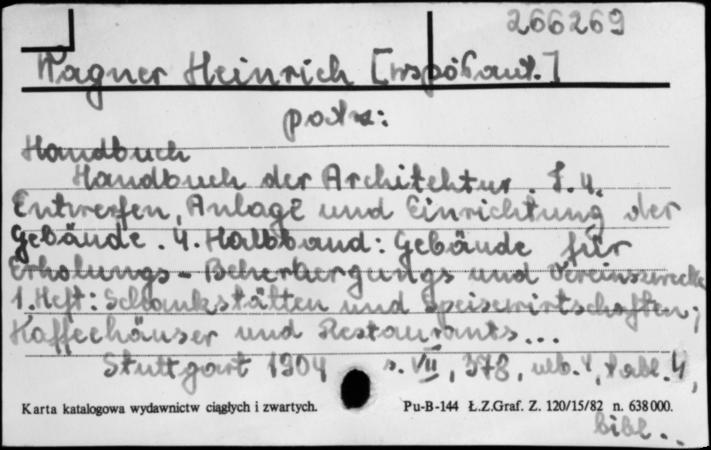 266269
Wagner Heinrich [współaut.]
patrz:
Handbuch
Handbuch der Architektur. T. 4.
Entwerfen, Anlage und Einrichtung der
Gebäude. 4. Halbband: Gebäude für
Erholungs- Beherbergungs und Vereinszwecke
1. Heft: Schankstätten und Speisewirtschaften;
Kaffeehäuser und Restaurants...
Stuttgart 1904 s. VII, 378, ulb. 4, tabl. 4,
Karta katalogowa wydawnictw ciągłych i zwartych. Pu-B-144 Ł.Z.Graf. Z. 120/15/82 n. 638000.
bibl..